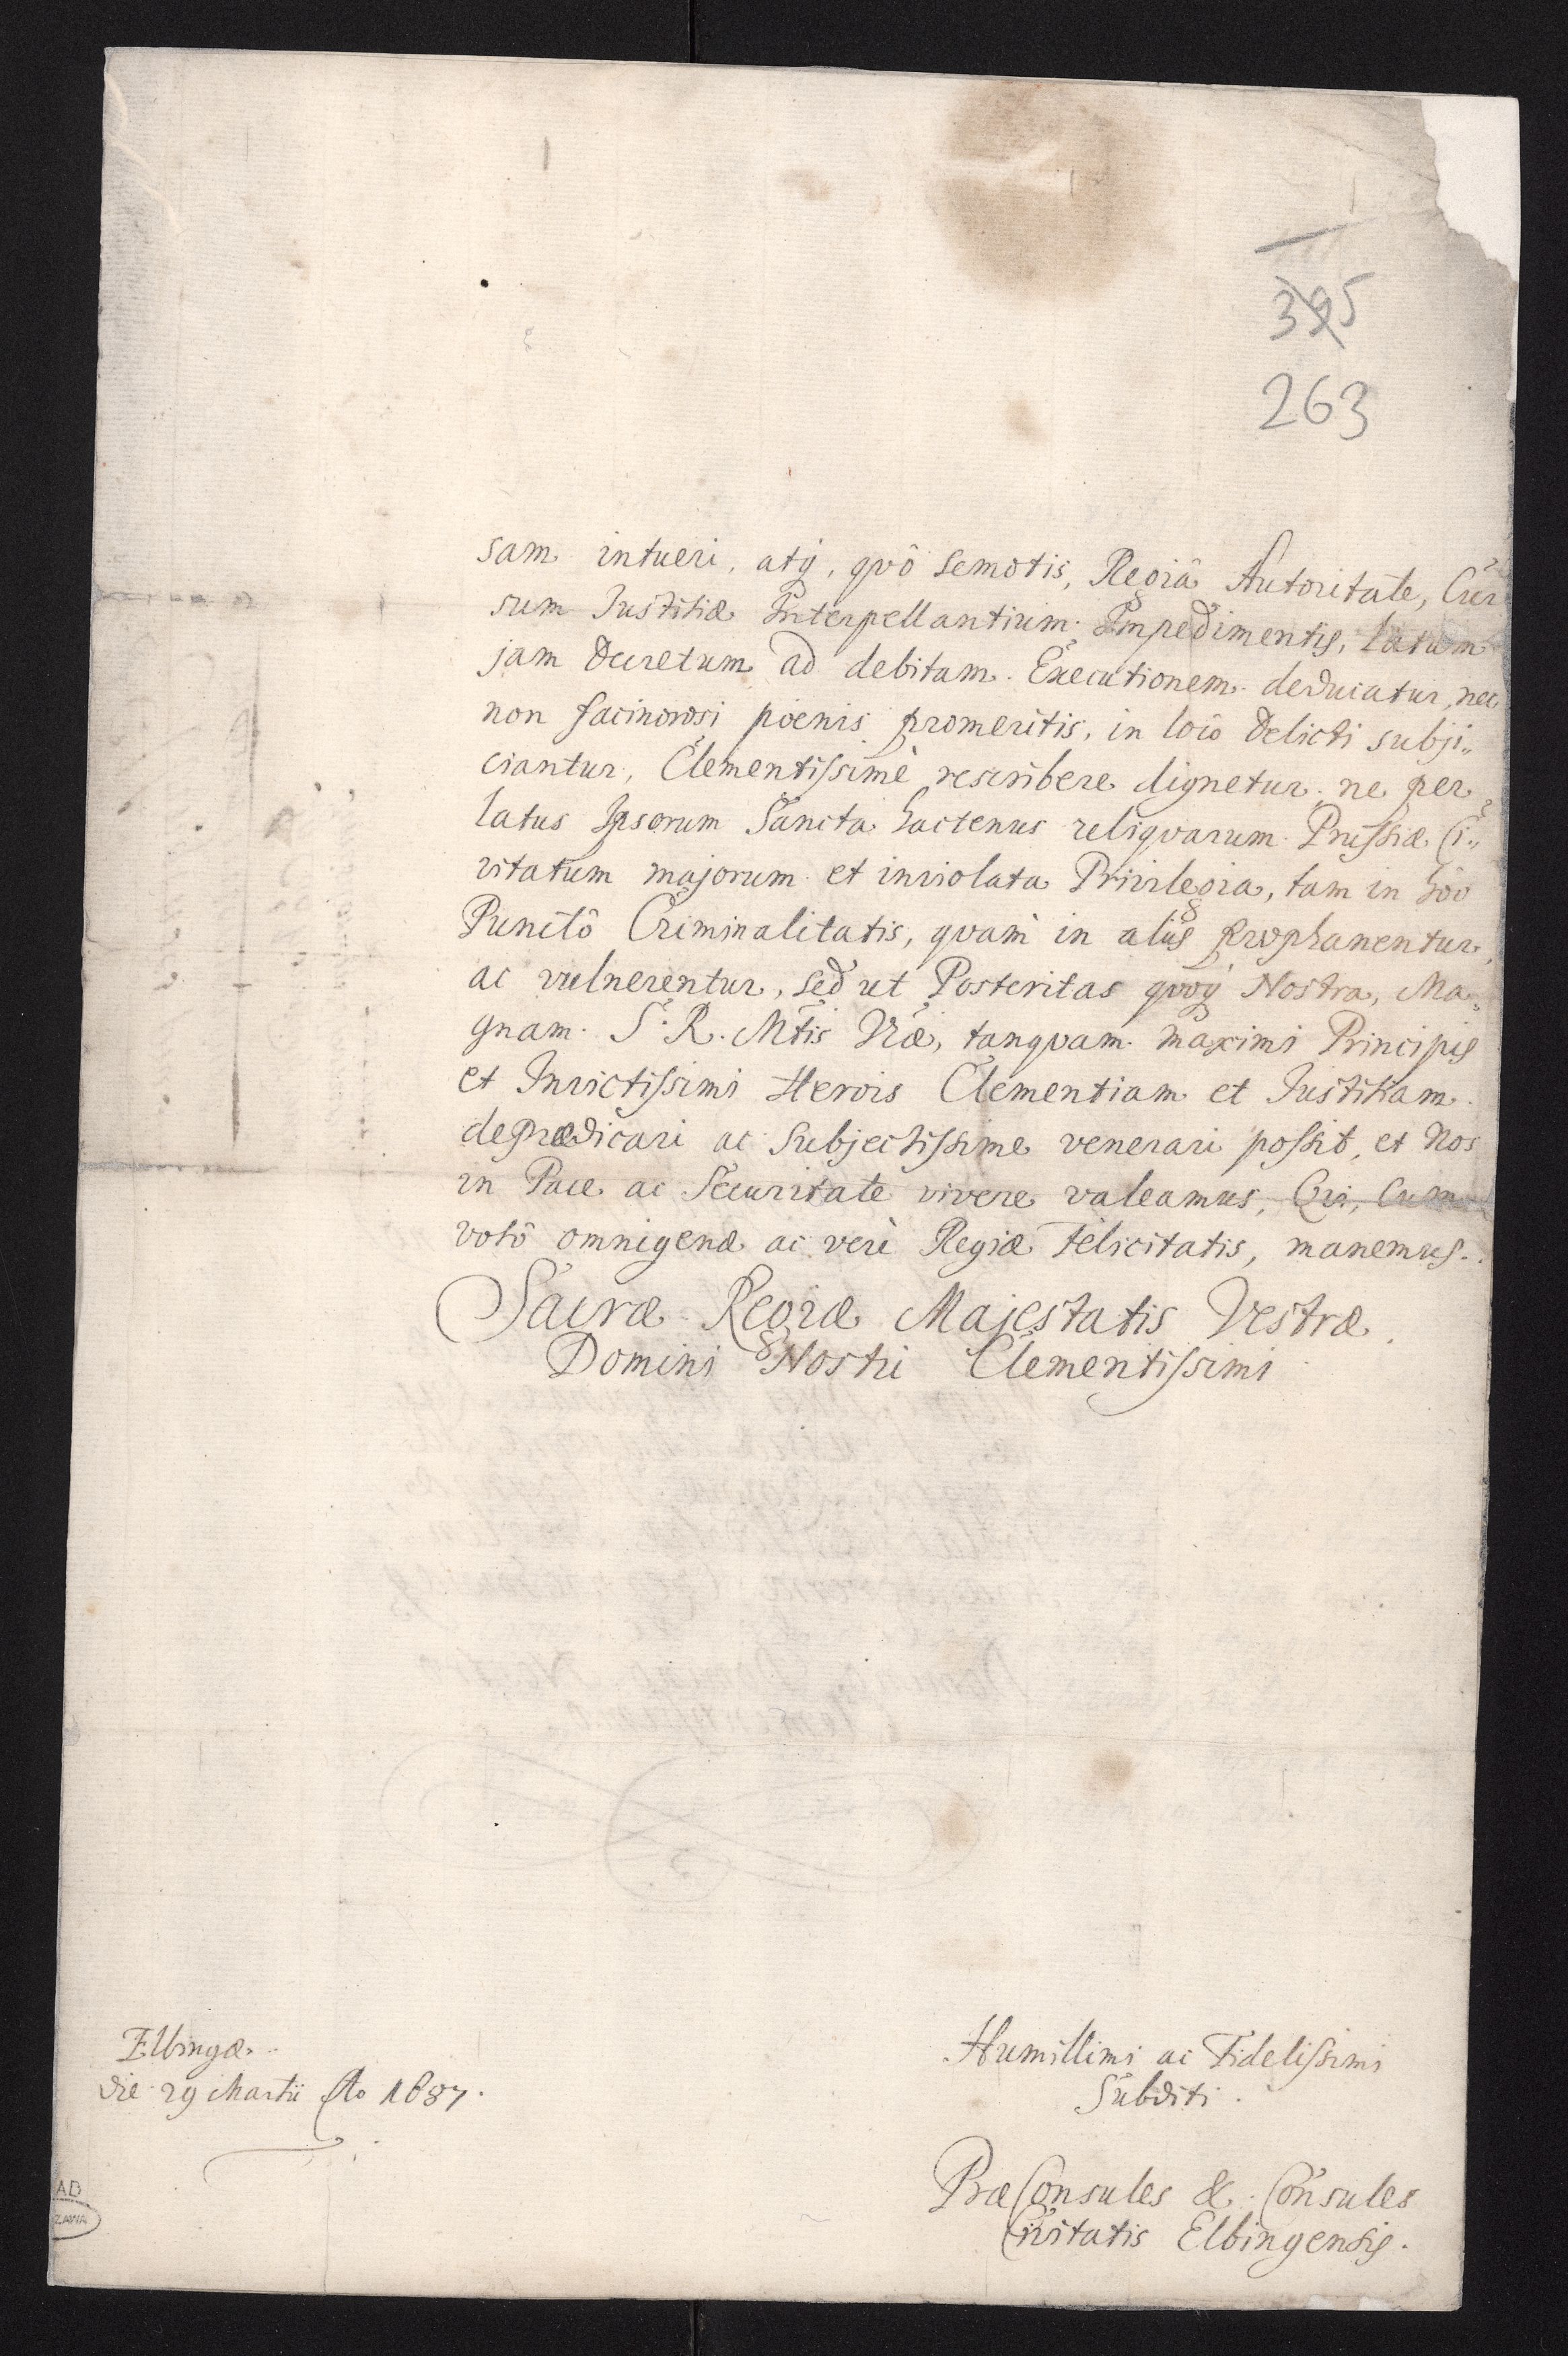 395
263
sam intueri, atq, qvô semotis, Regiâ Autoritate, Cur
sum Justitiæ Interpellantium Impedimentis, latum
jam Decretum ad debitam Executionem deducatur, nec
non facinorosi pœnis promeritis, in locô Delicti subji„
ciantur, Clementissimè rescribere dignetur. ne per
latus Ipsorum Sancta hactenus reliqvarum Prussiæ Ci„
vitatum majorum et inviolata Privilegia, tam in hôc
Punctô Criminalitatis, qvam in alijs prophanentur,
ac vulnerentur, sed ut Posteritas qvoq Nostra, Ma„
gnam S. R. Mtis Vræ, tanqvam maximi Principis
et Invictissimi Herois Clementiam et Justitiam
deprædicari ac Subjectissime venerari possit, et Nos
in Pace ac Securitate vivere valeamus, Qvi, Cum
votô omnigenæ ac verè Regiæ Felicitatis, manemus.
Sacræ Regiæ Majestatis Vestræ
Domini Nostri Clementissimi
Elbingæ
die 29 Martii Ao 1687.
Humillimi ac Fidelissimi
Subditi.
PræConsules & Consules
Civitatis Elbingensis.
AD
ZAWA